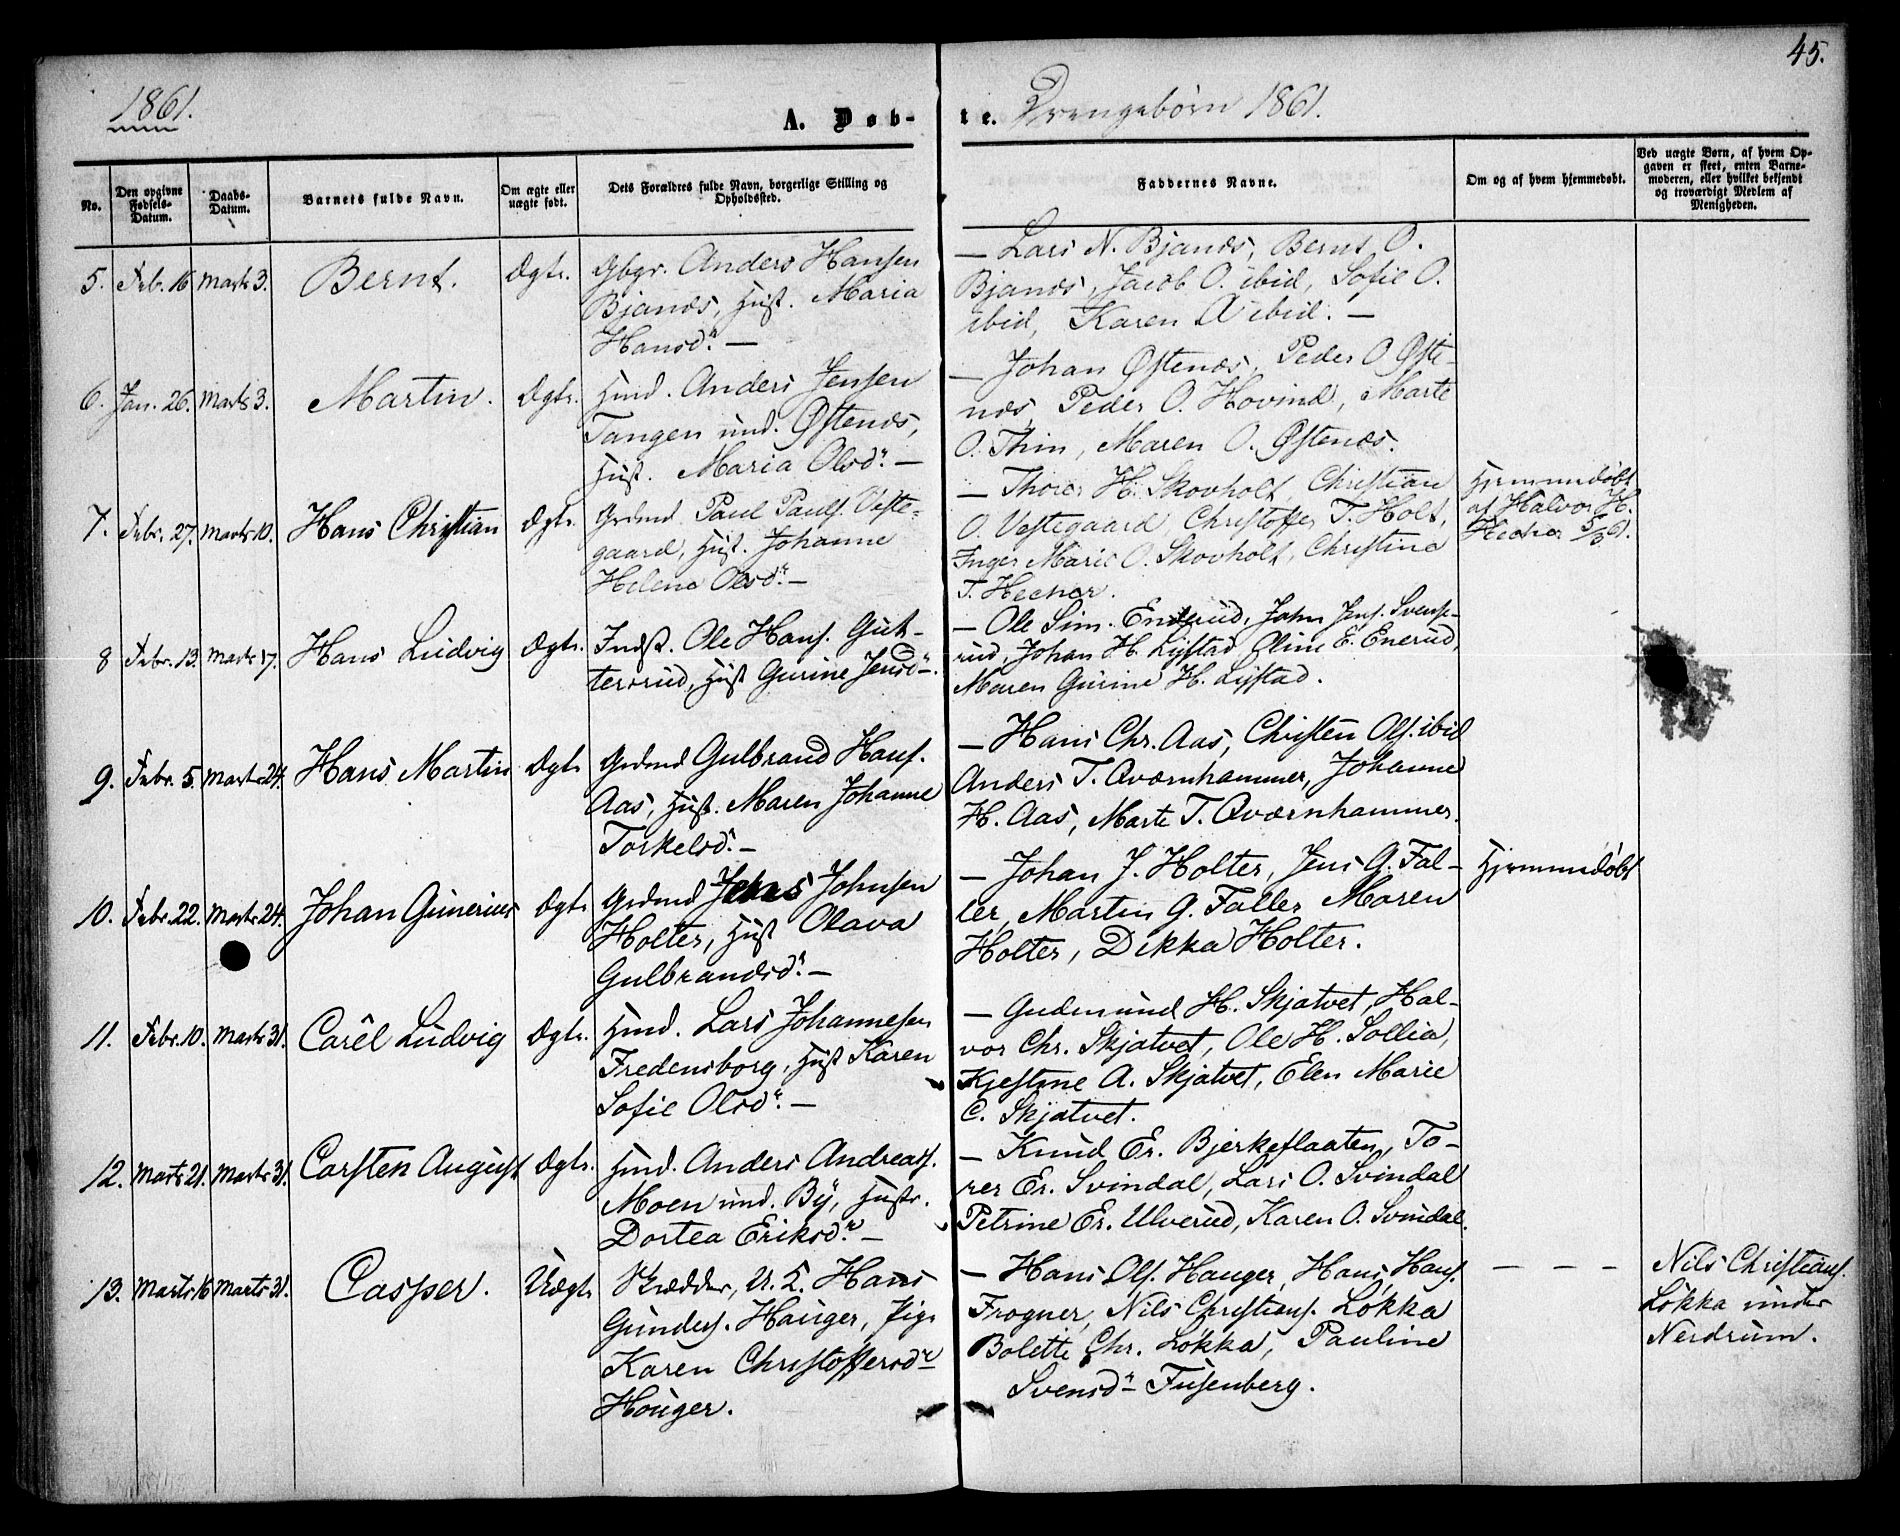 45.
1861.
A. Døb-
te. Drengebørn 1861.
No.
Den opgivne Fødsels-Datum.
Daabs-Datum.
Barnets fulde Navn.
Om ægte eller uægte født.
Dets Forældres fulde Navn, borgerlige Stilling og Opholdssted.
Faddernes Navne.
Om og af hvem hjemmedøbt.
Ved uægte Børn, af hvem Opgaven er skeet, enten Barnemoderen, eller hvilket bekjendt og troværdigt Medlem af Menigheden.
5. Febr. 16 Marts 3. Bernt. Ægte.
Gbgr. Anders Hansen
Bjanes, Hust. Maria
Hansd. —
— Lars N. Bjanes, Bernt O.
Bjanes, Jacob O. ibid, Sofie O.
ibid, Karen A ibid. —
6. Jan. 26. Marts 3. Martin. Ægte.
Hmd. Anders Jensen
Tangen und. Østenes,
Hust. Maria Olsd. —
— Johan Østenes, Peder O. Øste-
nes, Peder O. Hovind, Marte
O. Thim, Maren O. Østenes.
7. Febr. 27. Marts 10. Hans Christian Ægte.
Grdmd Paul Pauls. Veste-
gaard, Hust. Johanne
Helene Olsd. —
— Thorer H. Skovholt, Christian
O. Vestegaard, Christoffer T. Holt,
Inger Marie O. Skovholt, Christine
T. Hecher.
Hjemmedøbt
af Halvor H.
Hecher 5/3 61.
8 Febr. 13. Marts 17. Hans Ludvig Ægte.
Indst. Ole Hans. Gut-
tersrud, Hust Gurine Jensd. —
— Ole Sim. Enerud, John Jens. Svense-
rud, Johan H. Lystad, Oline E. Enerud,
Maren Gurine H. Lystad.
9. Febr. 5. Marts 24. Hans Martin Ægte
Grdmd Gulbrand Hans.
Aas, Hust. Maren Johanne
Torkelsd. —
— Hans Chr. Aas, Christen Ols. ibid
Anders T. Qværnhammer, Johanne
H. Aas, Marte T. Qværnhammer.
10. Febr. 22. Marts 24. Johan Gunerius Ægte
Grdmd Jens Johnsen
Holter, Hust Olava
Gulbrandsd. —
— Johan J. Holter, Jens G. Fal-
ler, Martin G. Faller Maren
Holter, Dikka Holter.
Hjemmedøbt
11. Febr. 10. Marts 31. Carl Ludvig Ægte.
Hmd. Lars Johannesen
Fredensborg, Hust Karen
Sofie Olsd. —
— Gudmund H. Skjatvet, Hal-
vor Chr. Skjatvet, Ole H. Sollia,
Kjestine A. Skjatvet, Elen Marie
C. Skjatvet.
12. Marts 21. Marts 31. Carsten August Ægte.
Hmd. Anders Andreas.
Moen und. By, Hustr.
Dortea Eriksd. —
— Knud Er. Bjerkeflaaten, To-
rer Er. Svindal, Lars O. Svindal
Petrine Er. Ulverud, Karen O. Svindal.
13. Marts 16 Marts 31. Casper. Uægte
Skrædder, U. K. Hans
Gunders. Hauger, Pige
Karen Christoffersd.
Houger.
— Hans Ols. Hauger, Hans Hans.
Frogner, Nils Christians. Løkka
Bolette Chr. Løkka, Pauline
Svensd. Fusenberg.
— — —
Nils Christians.
Løkka under
Nerdrum.